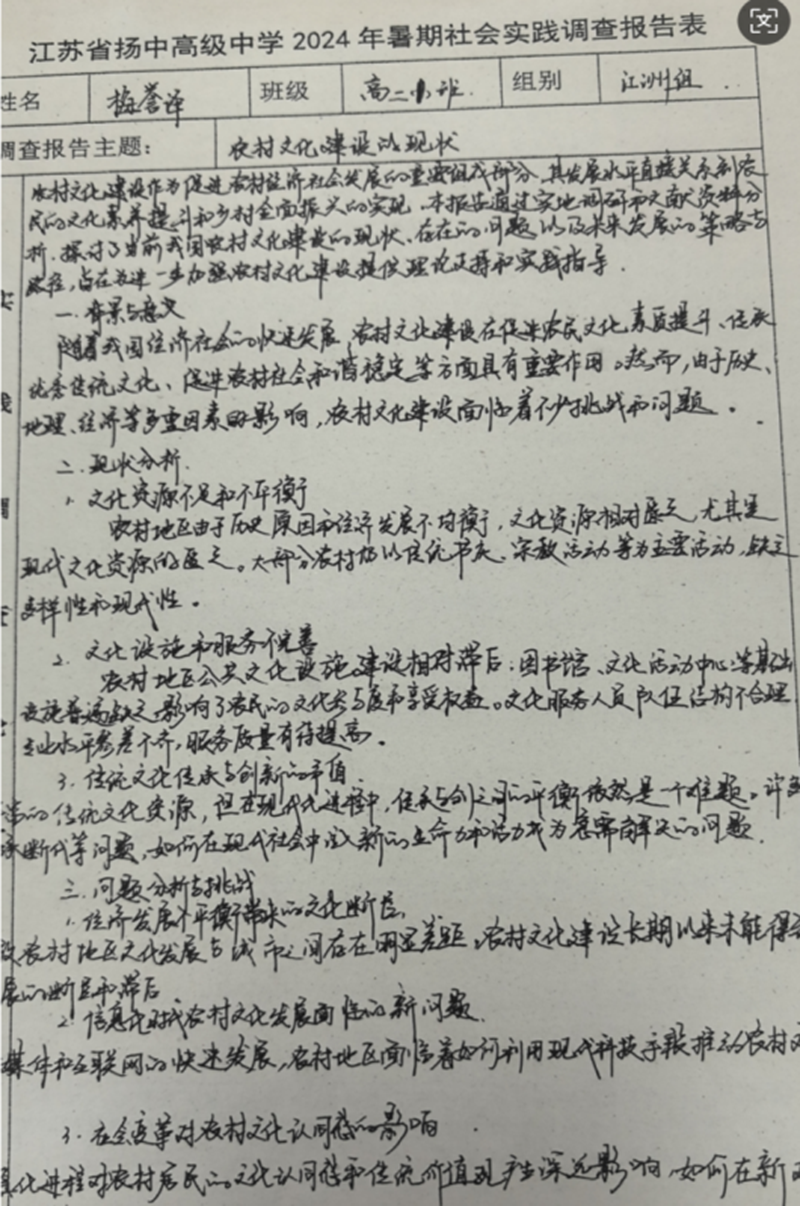 江苏省扬中高级中学2024年暑期社会实践调查报告表
姓名 梅誉译 班级 高二小班. 组别 江洲组.
调查报告主题: 农村文化建设的现状
农村文化建设作为促进农村经济社会发展的重要组成部分,其发展水平直接关系到农
民的文化素养提升和乡村全面振兴的实现.本报告通过实地调研和文献资料分
析.探讨了当前我国农村文化建设的现状、存在的问题以及未来发展的策略与
路径,旨在为进一步加强农村文化建设提供理论支持和实践指导.
一.背景与意义
随着我国经济社会的快速发展,农村文化建设在促进农民文化素质提升、传承
优秀传统文化、促进农村社会和谐稳定等方面具有重要作用。然而,由于历史、
地理、经济等多重因素的影响,农村文化建设面临着不少挑战和问题.
二.现状分析.
1.文化资源不足和不平衡
农村地区由于历史原因和经济发展不均衡,文化资源相对匮乏,尤其是
现代文化资源的匮乏。大部分农村仍以传统节庆、宗教活动等为主要活动,缺乏
多样性和现代性。
2.文化设施和服务不完善
农村地区公共文化设施建设相对滞后.图书馆、文化活动中心等基础
设施普遍缺乏,影响了农民的文化参与度和享受权益。文化服务人员队伍结构不合理,
专业水平参差不齐,服务质量有待提高。
3.传统文化传承与创新的
的传统文化资源,但在现代化进程中,传承与创之间的平衡依然是一个难题。许多
断代等问题,如何在现代社会中注入新的生命力和活力成为急需解决的问题.
三.问题分析与挑战
1.经济发展不平衡带来的文化断层
农村地区文化发展与城市之间存在明显差距.农村文化建设长期以来未能得
展的断层和滞后
2.信息化时代农村文化发展面临的新问题.
媒体和互联网的快速发展,农村地区面临着如何利用现代科技手段推动农村文
3.社会变革对农村文化认同感的影响
化进程对农村居民的文化认同感和传统价值观产生深远影响,如何在新
实
践
调
查